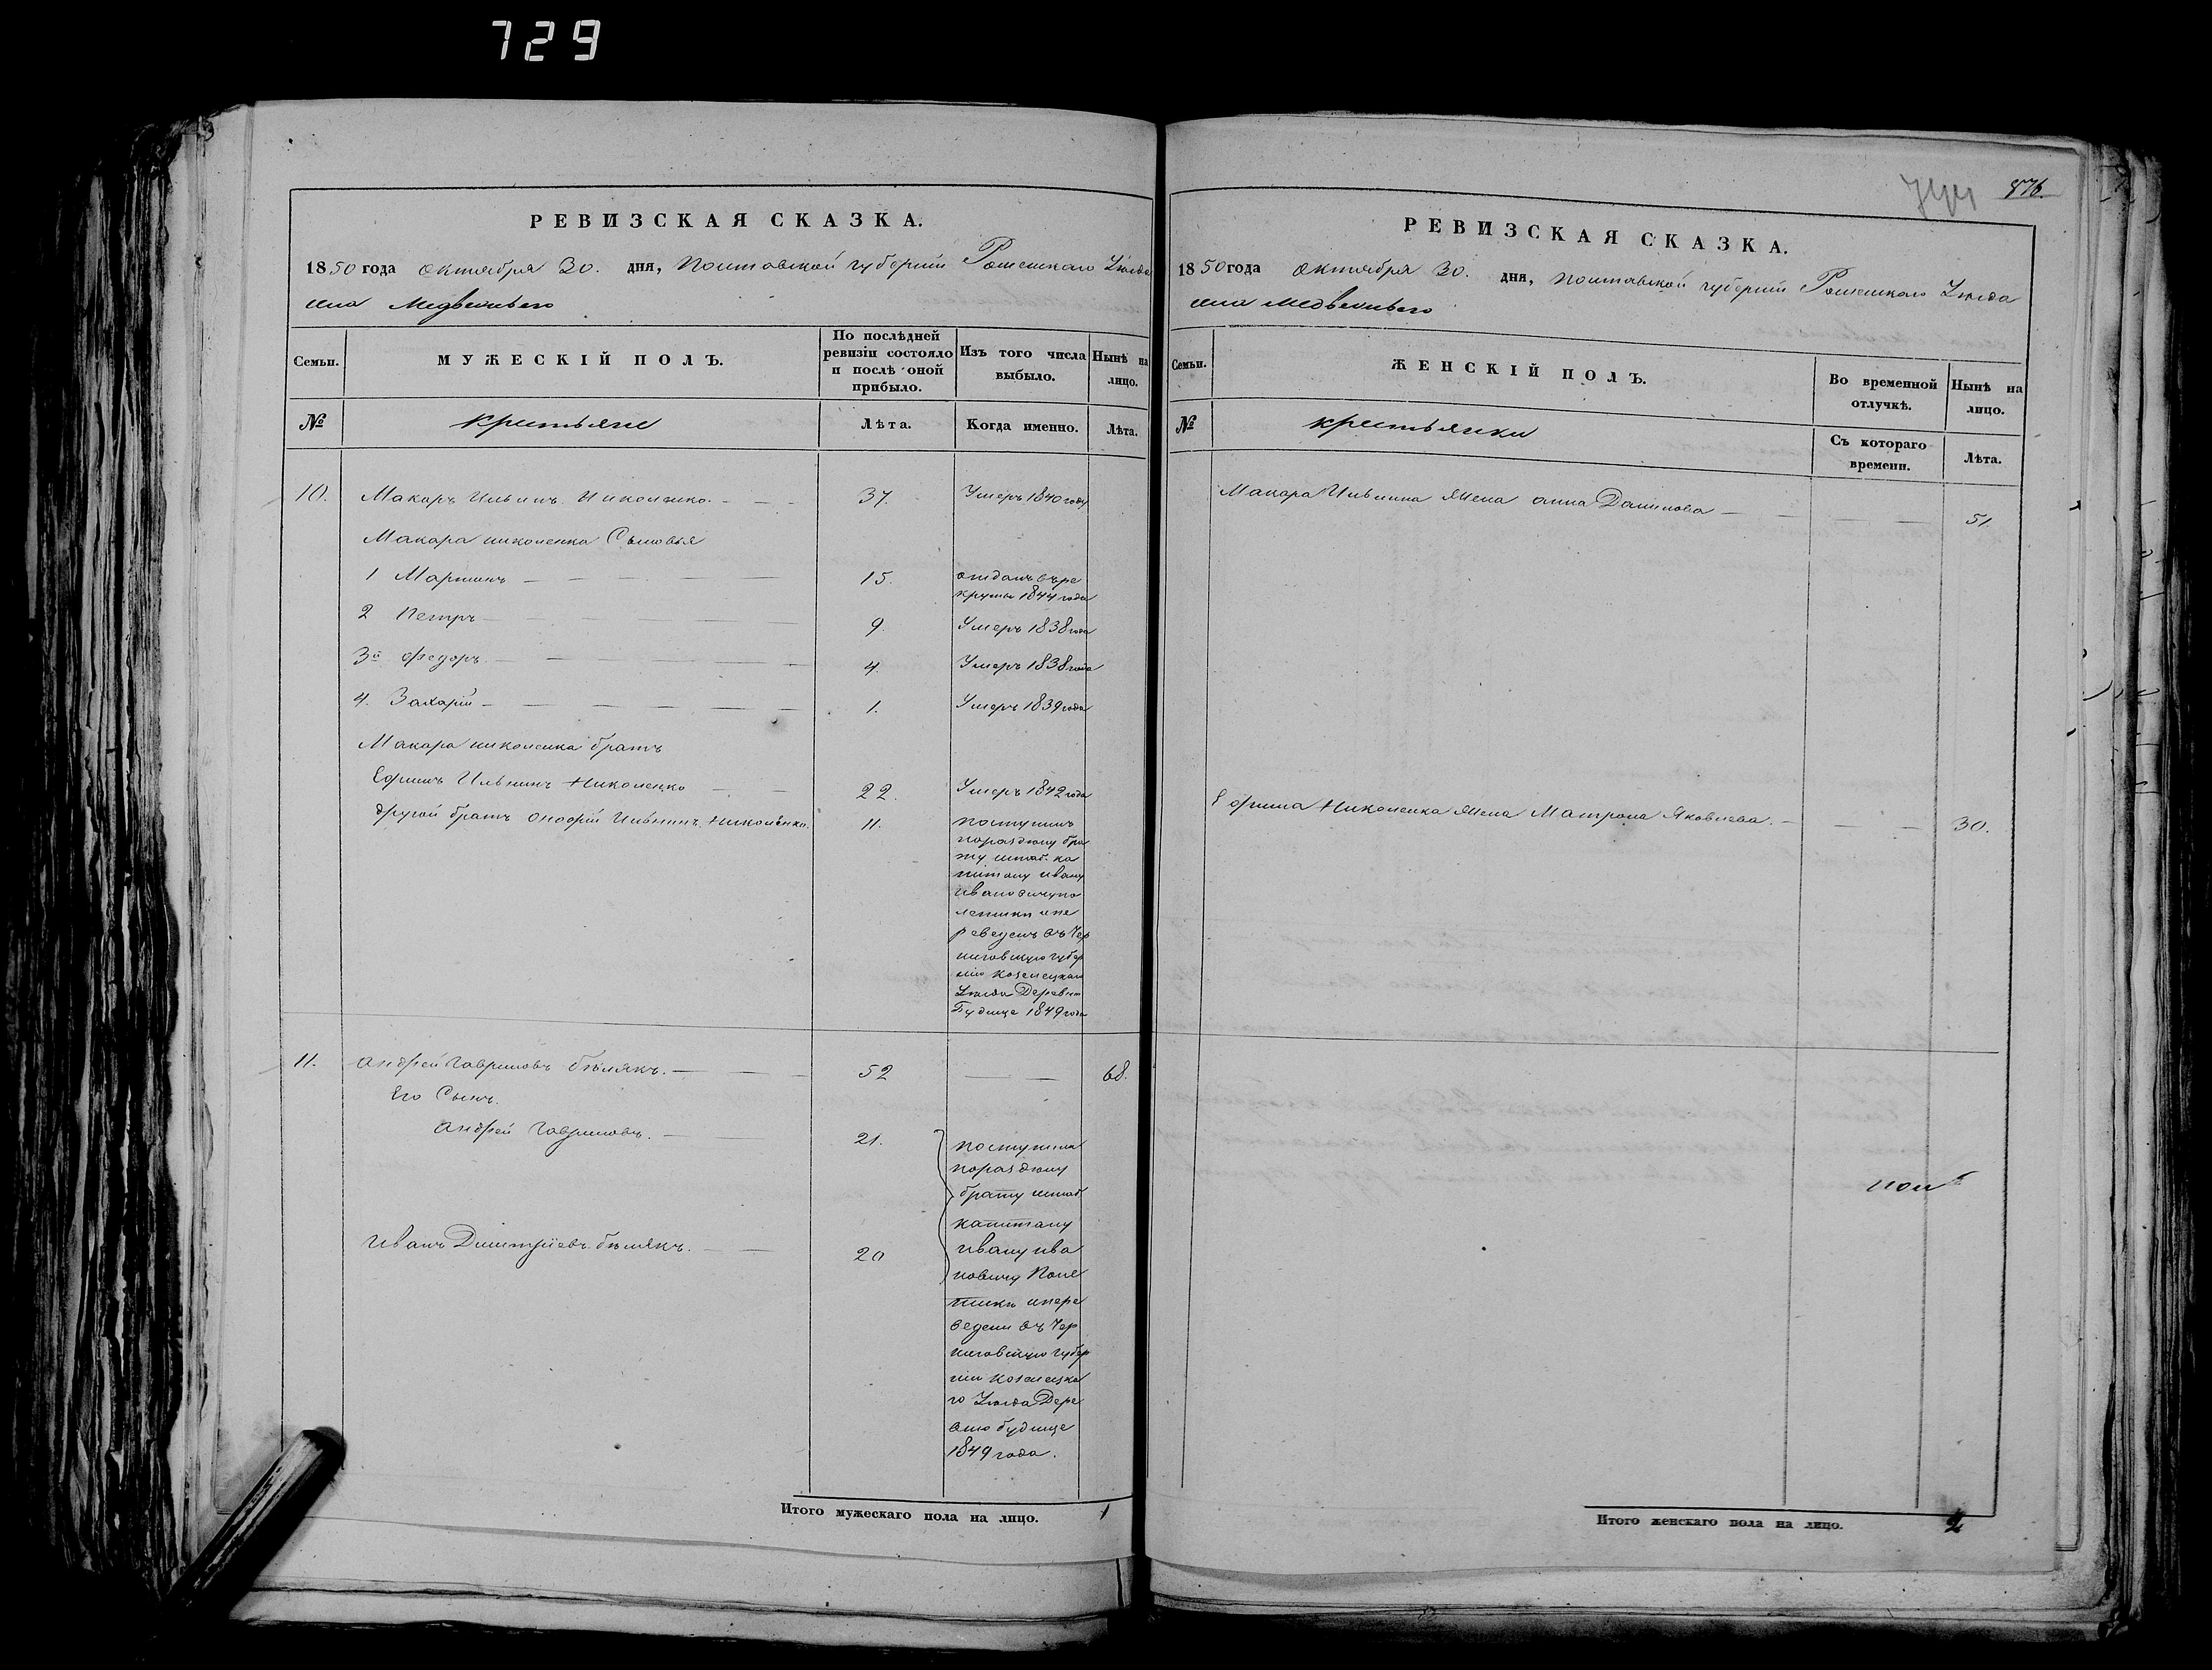 729
РЕВИЗСКАЯ СКАЗКА.
1850 года октября 30. дня, Полтавской губернии Роменскаго Уѣзда
села Медвежьего
Семьи.
МУЖЕСКІЙ ПОЛЪ.
По послѣдней ревизіи состояло и послѣ оной прибыло.
Изъ того числа выбыло.
Нынѣ на лицо.
№
крестьяне
Лѣта.
Когда именно.
Лѣта.
10. Макаръ Ильинъ Николенко. 37. Умеръ 1840 году
Макара николенка Сыновья
1 Мартинъ 15. отданъ въ ре
круты 1844 года
2 Петръ 9. Умеръ 1838 года
3й Федоръ 4. Умеръ 1838 года
4. Захарій 1. Умеръ 1839 года
Макара николенка братъ
Ефимъ Ильинъ Николенко 22. Умеръ 1842 года
другой братъ Онофрій Ильинъ Николенко. 11. поступилъ
поразделу бра
ту штаб. ка
питану ивану
ивановичу по
летики и пе
реведенъ въ Чер
ниговскую губер
нию козелецкаго
Уѣзда Деревню
Будище 1849 года
11. андрей Гавриловъ бѣлякъ. 52 68.
Его Сынъ.
андрей Гавриловъ. 21. поступили
поразделу
брату штаб.
капитану
Иванъ Дмитріевъ бѣлякъ. 20 ивану ива
новичу Поле
тики и пере
ведени въ Чер
ниговскую губер
нии козелецка
го Уѣзда Дере
вню будище
1849 года.
Итого мужескаго пола на лицо. 1
744 876.
РЕВИЗСКАЯ СКАЗКА.
1850 года октября 30. дня, полтавской губерніи Роменскаго Уѣзда
села медвежьего
Семьи.
ЖЕНСКІЙ ПОЛЪ.
Во временной отлучкѣ.
Нынѣ на лицо.
№
крестьянки
Съ котораго времени.
Лѣта.
Макара Ильина Жена анна Данилова 51.
Ефима Николенка Жена Матрона Яковлева. 30.
Итого женскаго пола на лицо. 2